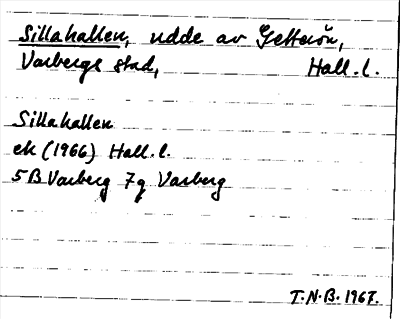 Sillahallen, udde av Getterön,
Varbergs stad, Hall. l.
Sillahallen
ek (1966) Hall. l.
5B Varberg 7g Varberg
T.N.B. 1967.